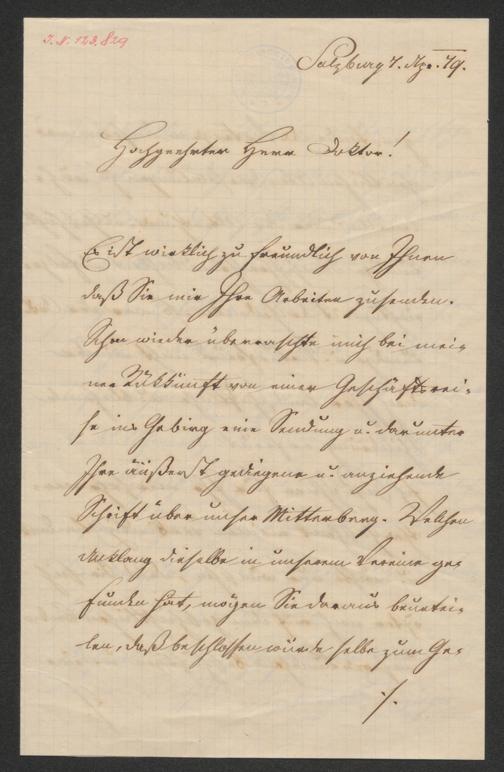 I. N. 123.829
Salzburg 7. Apr. 79.
Hochgeehrter Herr Doktor!
Es ist wirklich zu freundlich von Ihnen
daß Sie mir Ihre Arbeiten zusenden.
Schon wieder überraschte mich bei mei-
ner Rükkunft von einer Geschäftsrei-
se ins Gebirg eine Sendung u. darunter
Ihre äußerst gediegene u. anziehende
Schrift über unser Mitterberg. Welchen
Anklang dieselbe in unserem Vereine ge-
funden hat, mögen Sie daraus beurtei-
len, daß beschlossen wurde selbe zum Ge-
./.